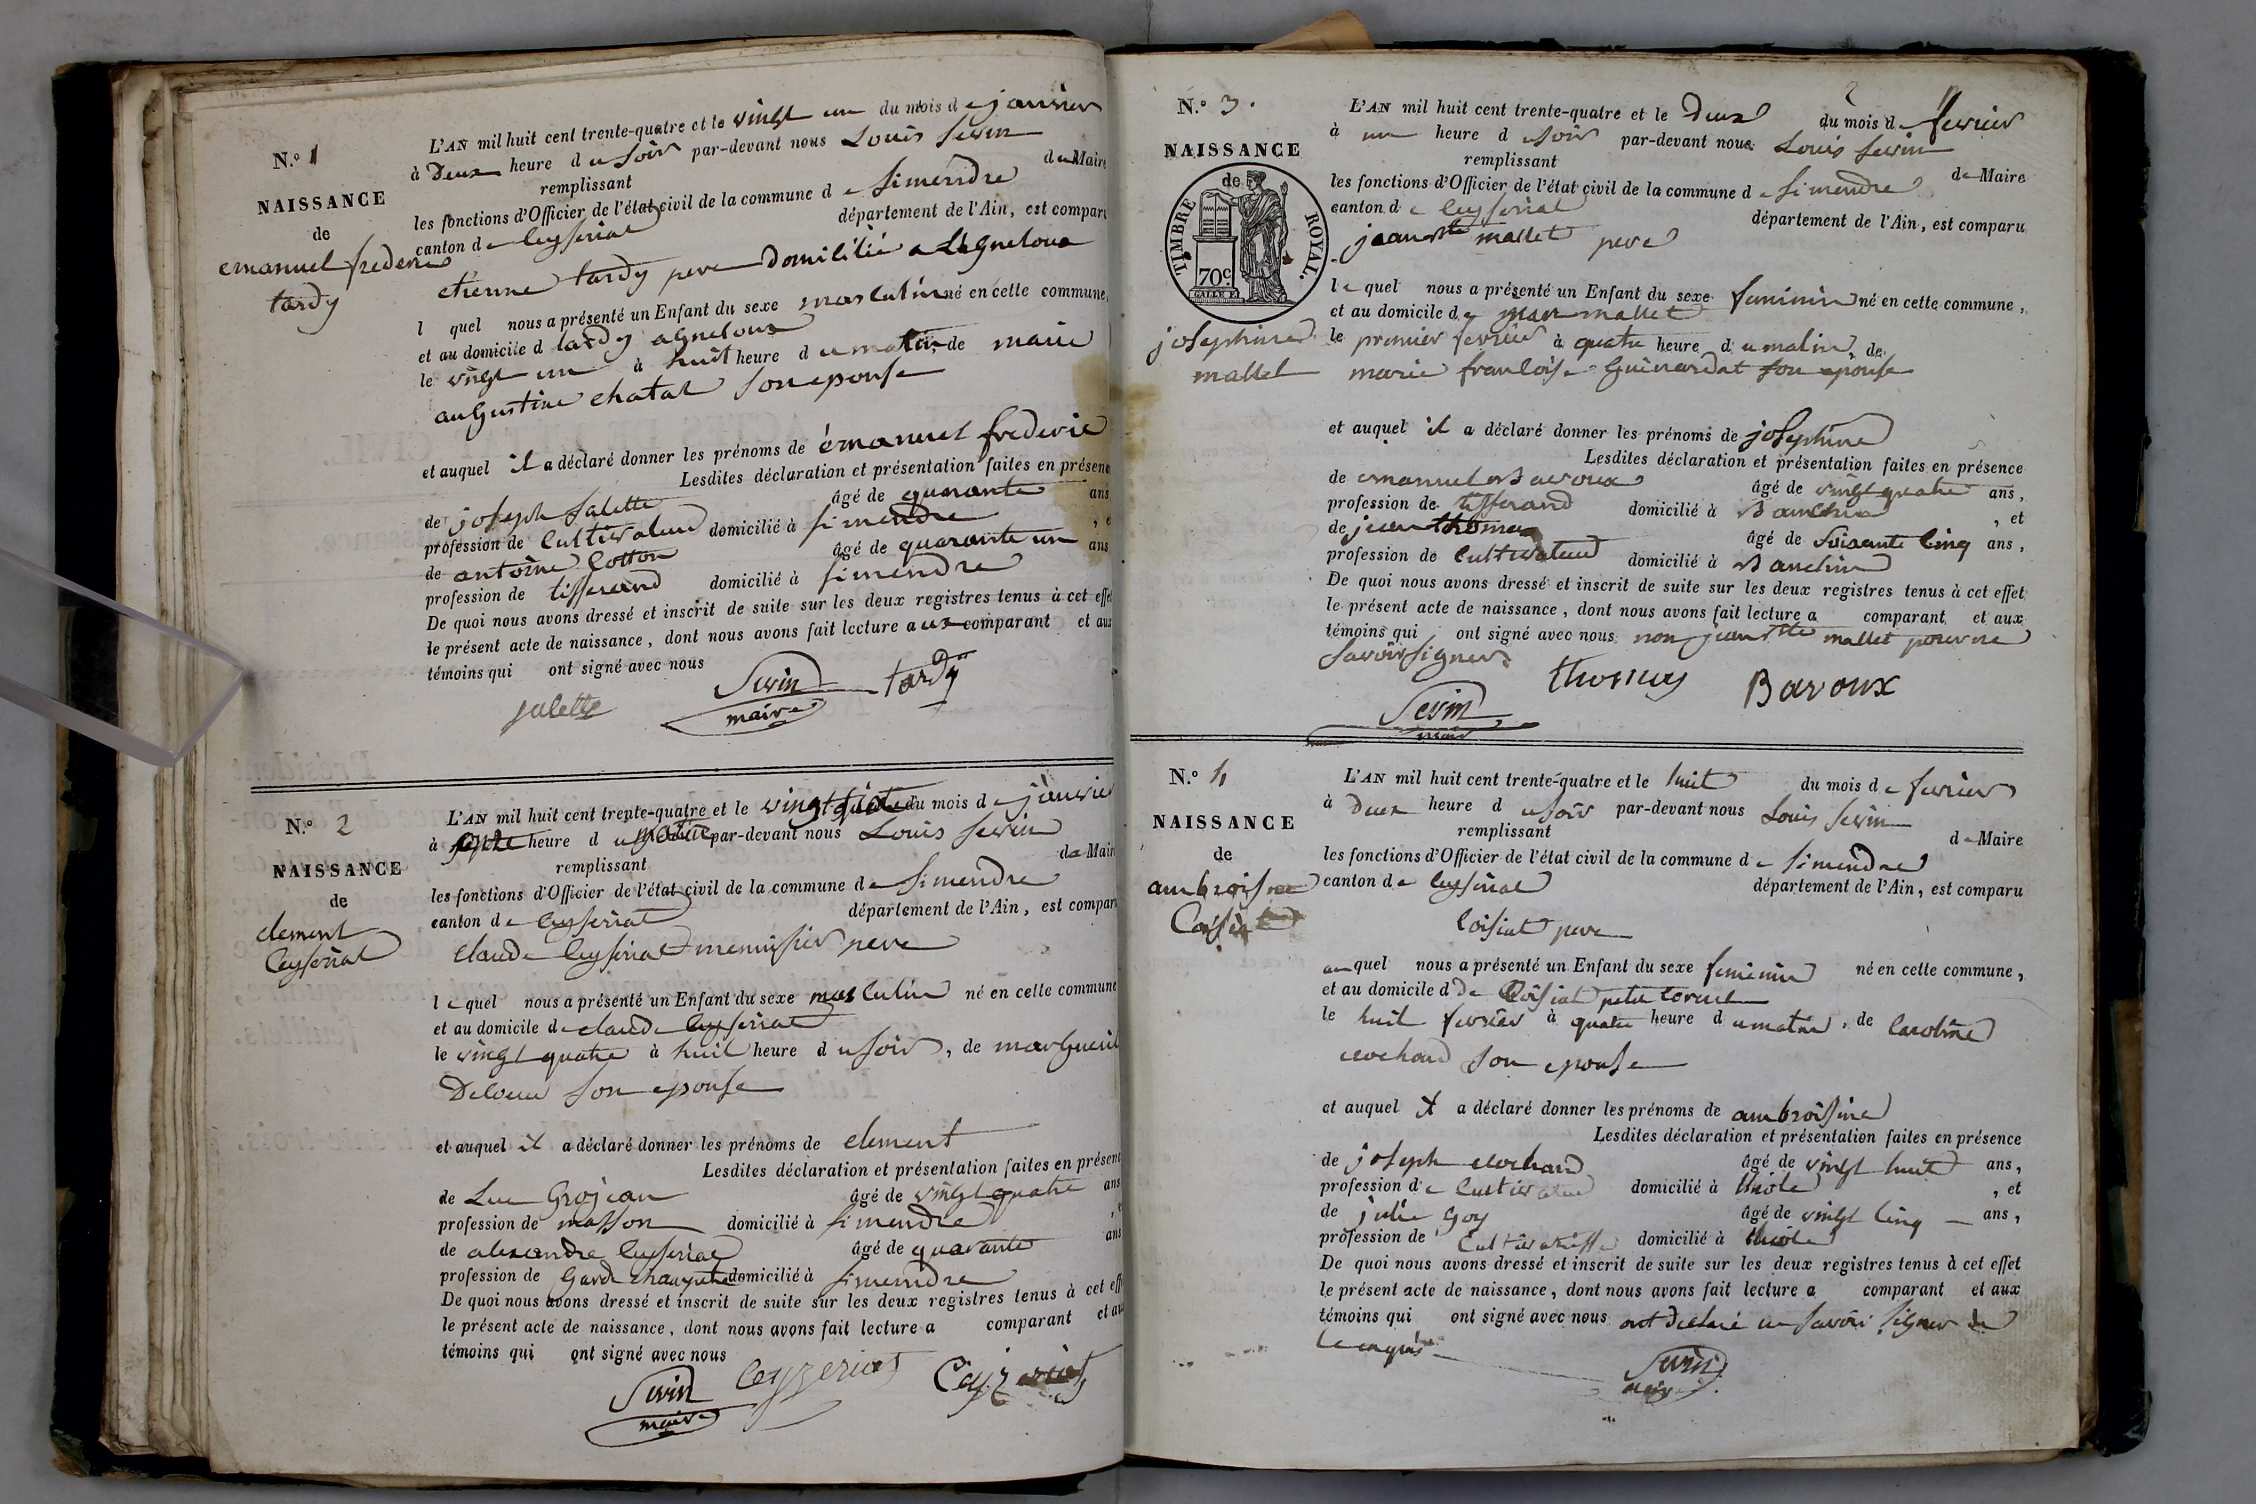 N.º 1
NAISSANCE
de
emanuel frederic
tardy
L'AN mil huit cent trente-quatre et le vingt un du mois de janvier
à Deux heure du soir par-devant nous Louis Sevin
remplissant de Maire
les fonctions d'Officier de l'état civil de la commune de simendre
canton de Ceyseriat département de l'Ain, est comparu
etienne tardy pere Domicilié a
l quel nous a présenté un Enfant du sexe masculin né en cette commune,
et au domicile d tardy
le vingt un à huit heure du matin, de marie
augustine chatat son epouse
et auquel il a déclaré donner les prénoms de émanuel frederic
Lesdites déclaration et présentation faites en présence
de joseph salette âgé de quarante ans
profession de Cultivateur domicilié à simendre
de antoine Cotton âgé de quarante un ans
profession de tisserand domicilié à simendre
De quoi nous avons dressé et inscrit de suite sur les deux registres tenus à cet effet
le présent acte de naissance, dont nous avons fait lecture aux comparant et aux
témoins qui ont signé avec nous
salette Sevin tardy
maire
N.º 2
NAISSANCE
de
clement
Ceyseriat
L'AN mil huit cent trente-quatre et le vingt du mois de janvier
à heure du matin par-devant nous Louis Sevin
remplissant de Maire
les fonctions d'Officier de l'état civil de la commune de simendre
canton de Ceyseriat département de l'Ain, est comparu
claude Ceyseriat menuisier pere
lequel nous a présenté un Enfant du sexe masculin né en cette commune
et au domicile de claude Ceyseriat
le vingt quatre à huit heure du soir, de marguerit
son epouse
et auquel il a déclaré donner les prénoms de clement
Lesdites déclaration et présentation faites en présence
de Luc Grojean âgé de vingt quatre ans
profession de masson domicilié à simendre
de alexandre Ceyseriat âgé de quarante ans
profession de Garde domicilié à simendre
De quoi nous avons dressé et inscrit de suite sur les deux registres tenus à cet effet
le présent acte de naissance, dont nous avons fait lecture a comparant et aux
témoins qui ont signé avec nous
Sevin Ceyzeriat Ceyzeriat
maire
2
N.º 3.
NAISSANCE
de
TIMBRE ROYAL.
70c
josephine
mallet
L'AN mil huit cent trente-quatre et le Deux du mois de fevrier
à une heure du soir par-devant nous Louis Sevin
remplissant de Maire
les fonctions d'Officier de l'état civil de la commune de simendre
canton de Ceyseriat département de l'Ain, est comparu
jean Bte mallet pere
lequel nous a présenté un Enfant du sexe feminin né en cette commune,
et au domicile de mallet
le premier fevrier à quatre heure du matin, de
marie francoise Guinardat son epouse
et auquel il a déclaré donner les prénoms de josephine
Lesdites déclaration et présentation faites en présence
de emanuel Bavoux âgé de vingt quatre ans,
profession de tisserand domicilié à
, et
de jean thomas âgé de soixante cinq ans,
profession de Cultivateur domicilié à
De quoi nous avons dressé et inscrit de suite sur les deux registres tenus à cet effet
le présent acte de naissance, dont nous avons fait lecture a comparant et aux
témoins qui ont signé avec nous non jean Bte mallet pour ne
savoir signer
thomas Bavoux
Sevin
maire
N.º 4
NAISSANCE
de
ambroisine
Coisiat
L'AN mil huit cent trente-quatre et le huit du mois de fevrier
à Deux heure du soir par-devant nous Louis Sevin
remplissant de Maire
les fonctions d'Officier de l'état civil de la commune de simendre
canton de Ceyseriat département de l'Ain, est comparu
Coisiat pere
quel nous a présenté un Enfant du sexe feminin né en cette commune,
et au domicile d De Coisiat
le huit fevrier à quatre heure du matin, de Caroline
crochard son epouse
et auquel il a déclaré donner les prénoms de ambroisine
Lesdites déclaration et présentation faites en présence
de joseph crochard âgé de vingt huit ans,
profession de Cultivateur domicilié à
, et
de julie Goy âgé de vingt cinq ans,
profession de Cultivatrisse domicilié à
De quoi nous avons dressé et inscrit de suite sur les deux registres tenus à cet effet
le présent acte de naissance, dont nous avons fait lecture a comparant et aux
témoins qui ont signé avec nous ont declaré ne savoir signer de
ce enquis
Sevin
maire